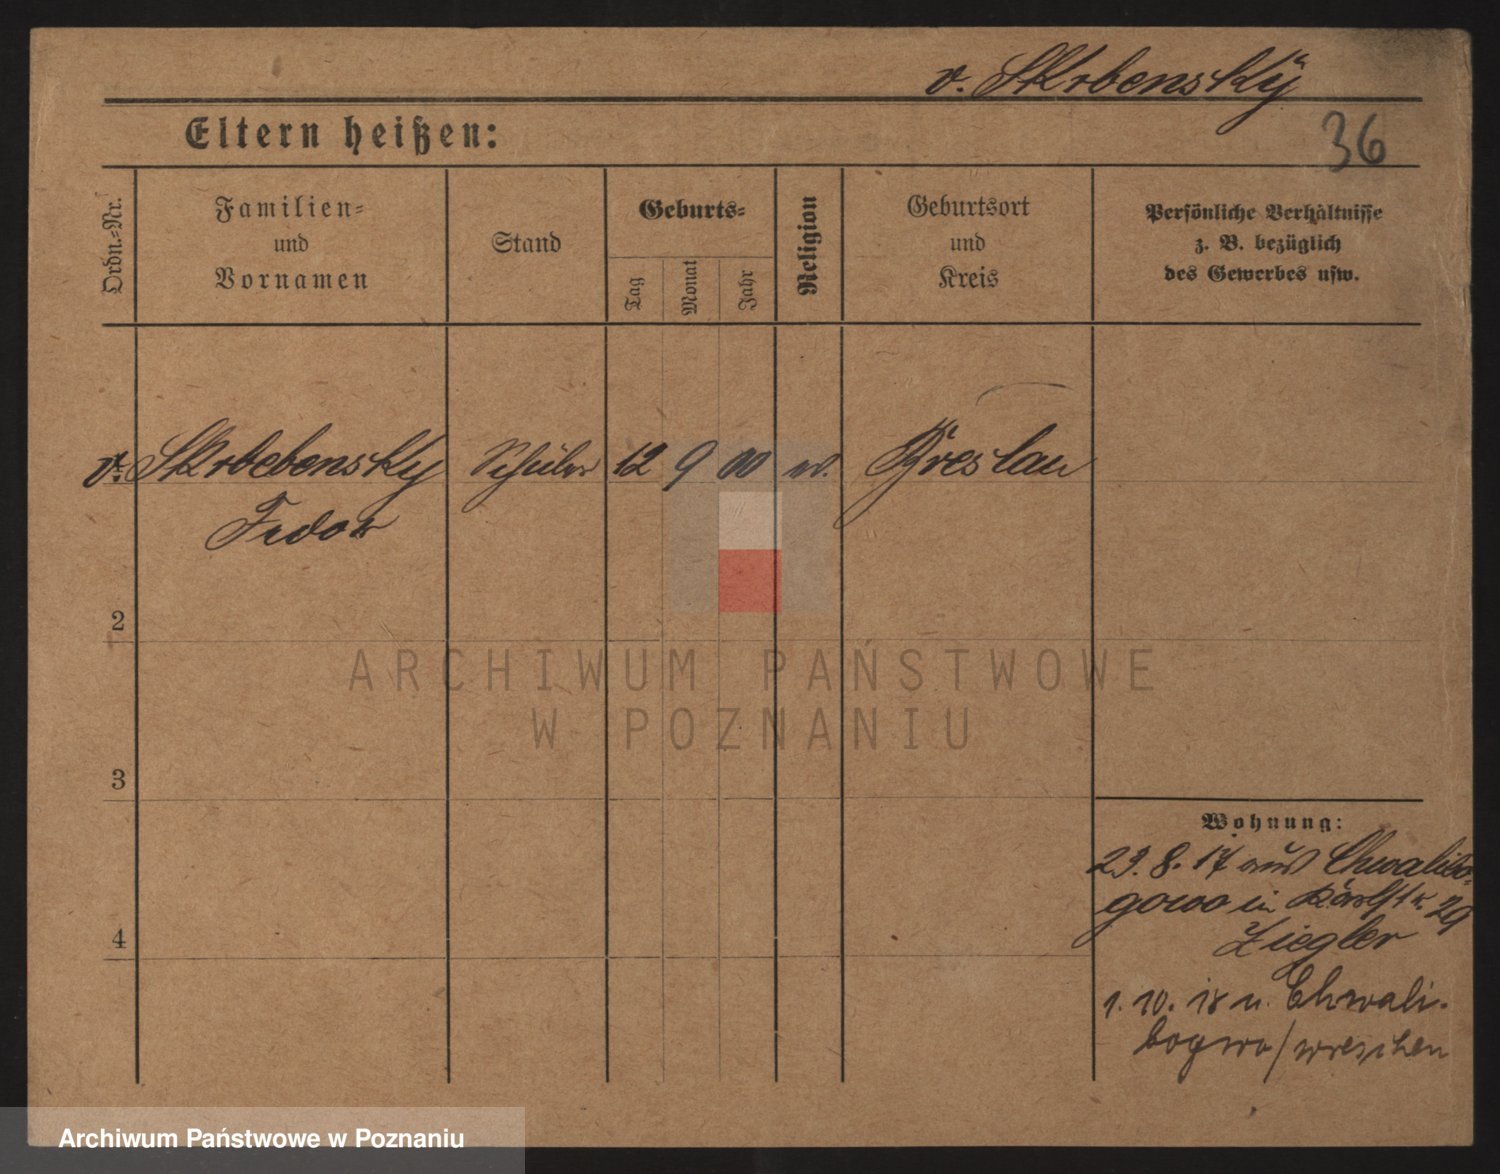 v. Skrbenský
36
Eltern heißen:
Ordn.=Nr.
Familien=
und
Vornamen
Stand
Geburts=
Tag
Monat
Jahr
Religion
Geburtsort
und
Kreis
Persönliche Verhältnisse
z. B. bezüglich
des Gewerbes usw.
v. Skrbebensky Schüler 12 9 00 ev. Breslau
Fedor
2
3
4
Wohnung:
29. 8. 17 aus Chwalibo-
gowo in Karlstr. 29
Ziegler
1. 10. 18 n. Chwali-
bogwo/Wreschen
ARCHIWUM PAŃSTWOWE
W POZNANIU
Archiwum Państwowe w Poznaniu